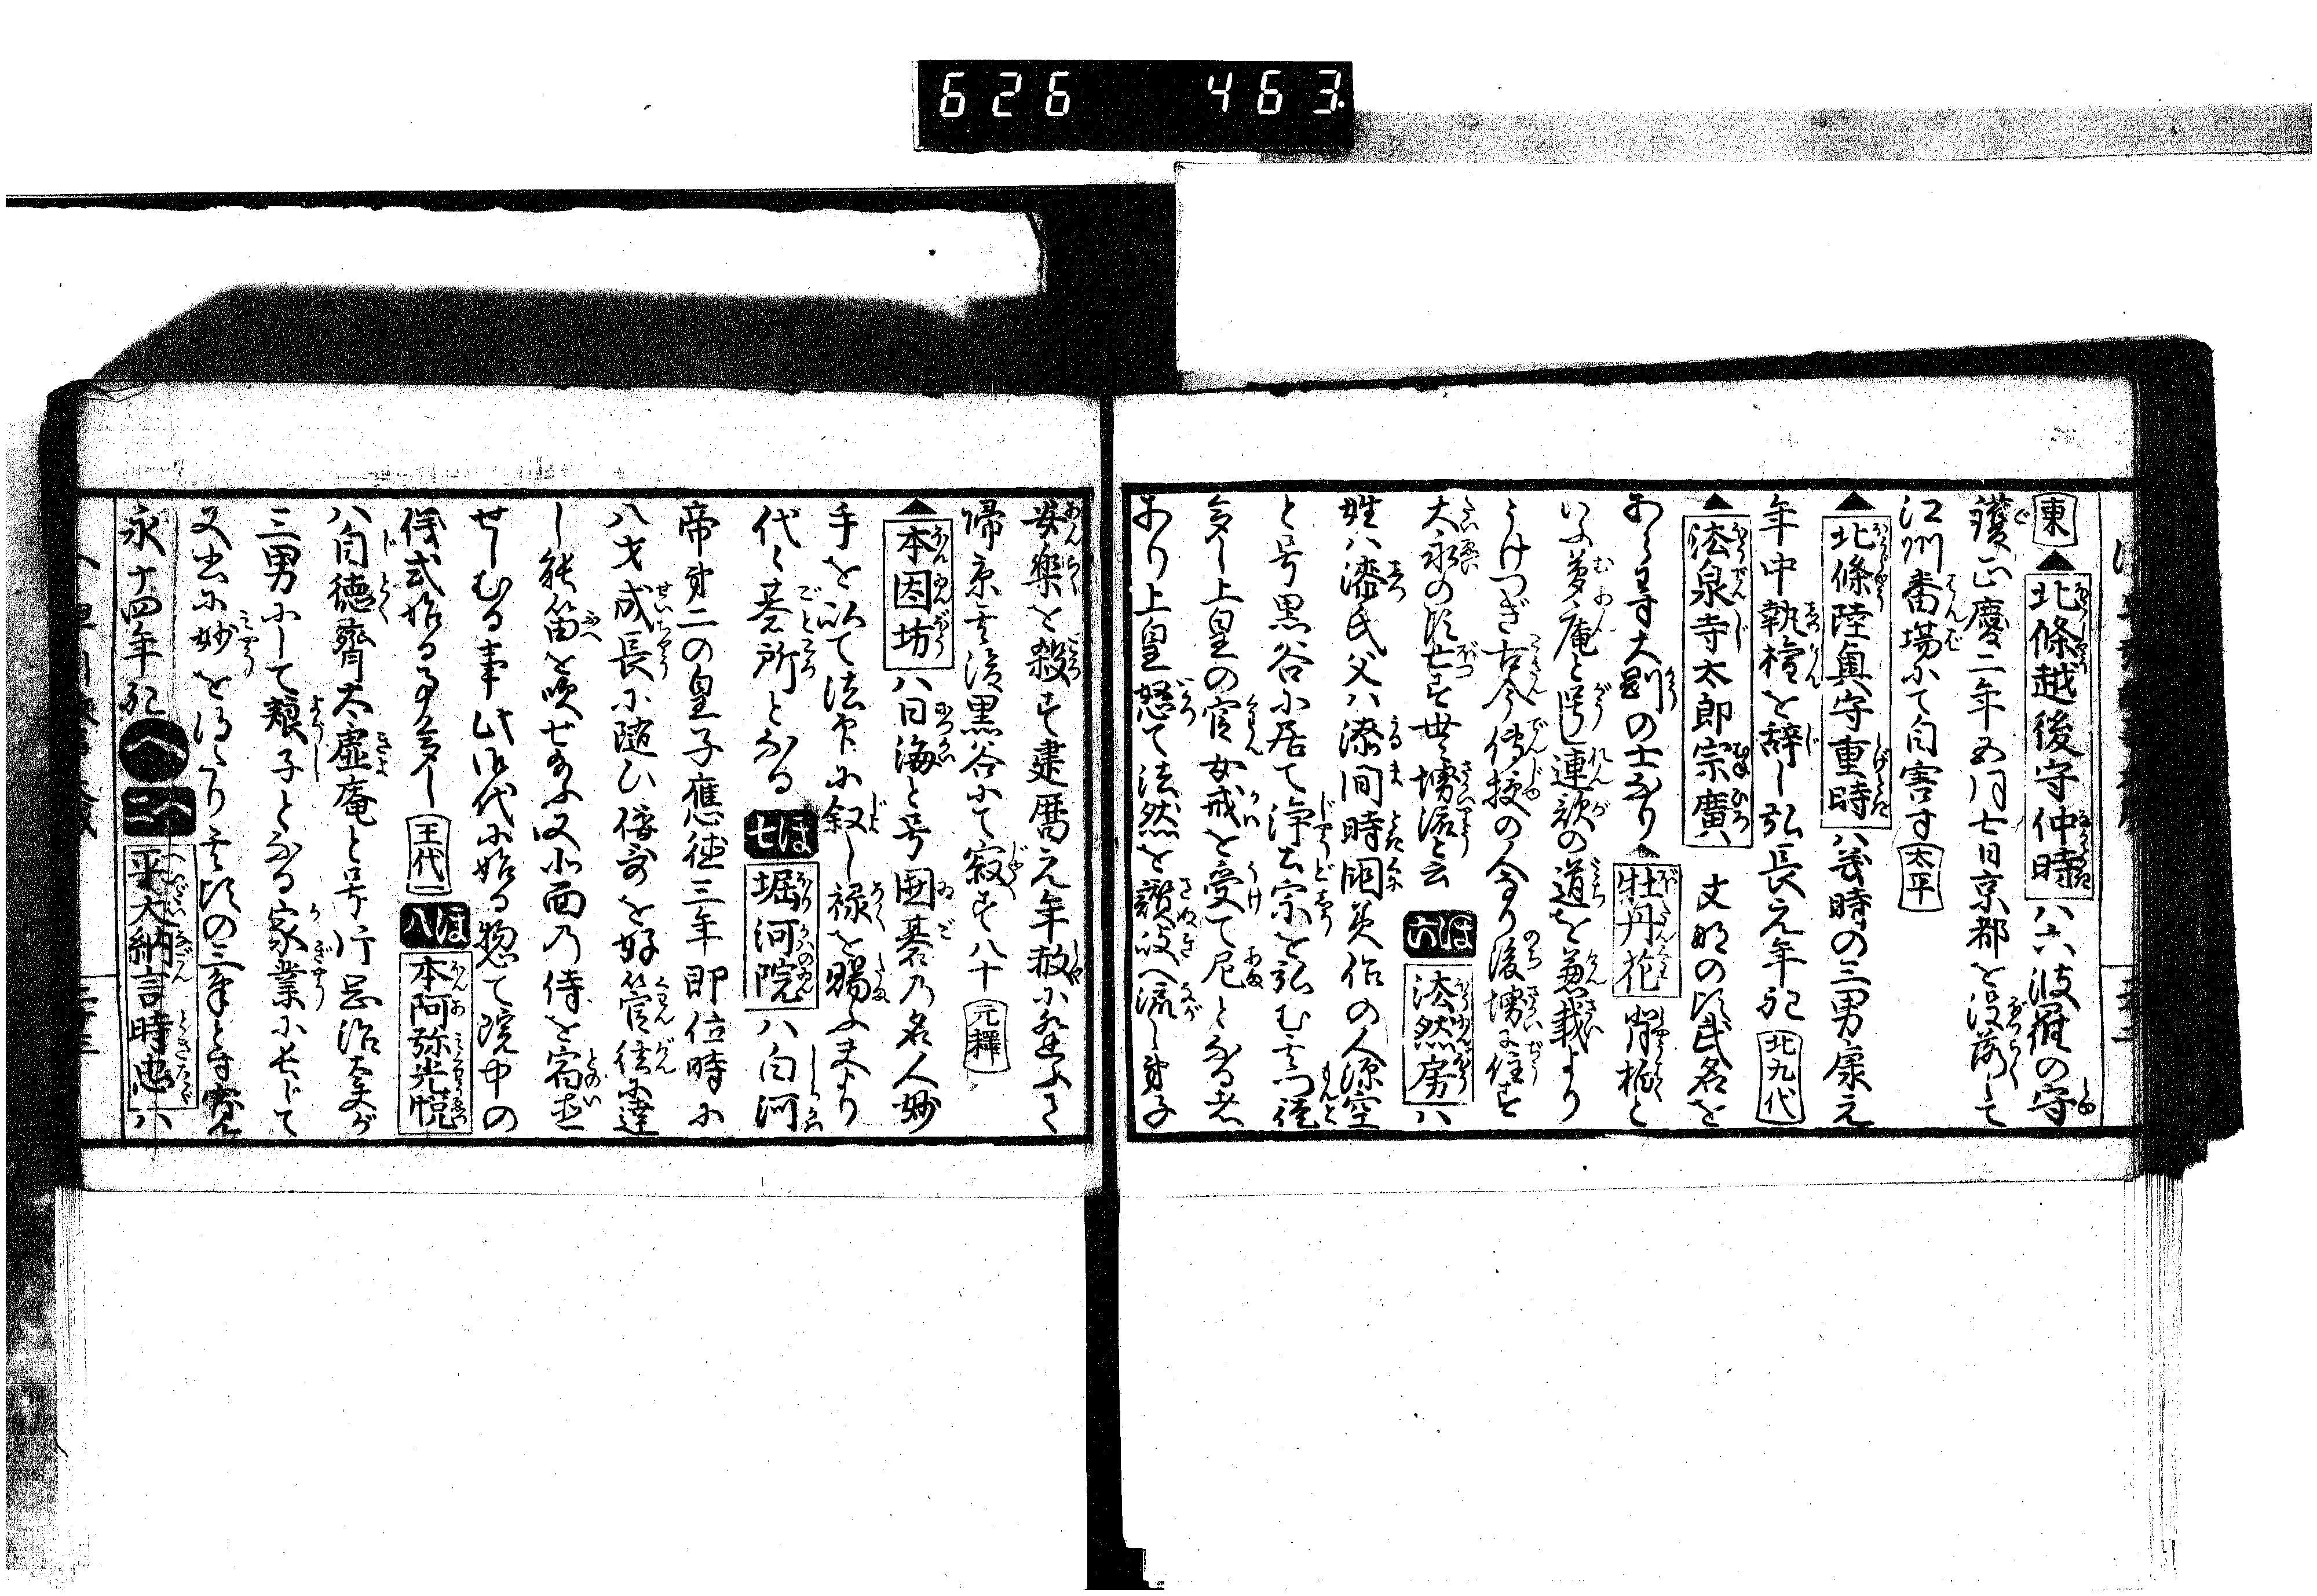 626 463
東 ▲北條越後守仲時ハ六波羅の守
護正慶二年五月七日京都を没落して
江州番場にて自害す 太平
▲北條陸奥守重時ハ義時の三男康元
年中執権を辞し弘長元年死 北九代
▲法泉寺太郎宗廣 文明の頃武名を
あらはす大剛の士なり ▲牡丹花 肖柏と
いふ夢庵と号し連歌の道を兼載より
うけつぎ古今伝授の人なり後堺に住す
大永の頃亡す世に堺流と云 ほ六 法然房ハ
姓ハ漆氏父ハ漆間時国美作の人源空
と号黒谷に居て浄土宗を弘む門徒
多し上皇の官女戒を受て尼となる者
あり上皇怒て法然を讃岐へ流し弟子
安楽を殺す建暦元年赦に逢ふて
帰京其後黒谷にて寂す八十 元釋
▲本因坊ハ日海と号囲碁乃名人妙
手を以て法印に叙し禄を賜ふ夫より
代々碁所となる ほ七 堀河院ハ白河
帝第二の皇子應徳三年即位時に
八才成長に随ひ倭哥を好管絃に達
し能笛を吹せ給ふ又北面乃侍を宿直
せしむる事此御代に始る惣て院中の
儀式始る事多し 王代一 ほ八 本阿弥光悦
ハ自徳齋太虚庵と号片岡治太夫が
三男にして養子となる家業に長じて
又書に妙を得たり其頃の三筆とす寛
永十四年死 へ へ一 平大納言時忠ハ